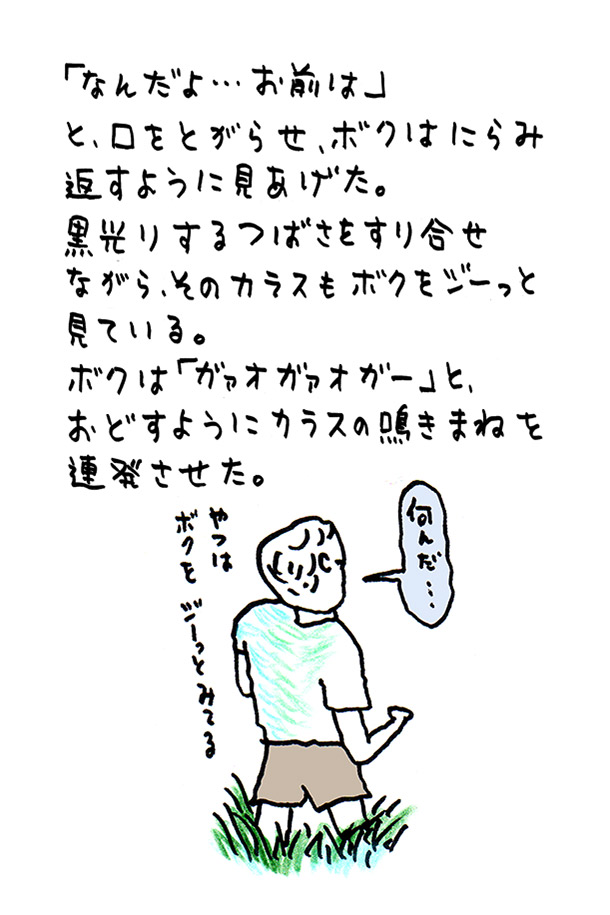 「なんだよ…お前は」
と、口をとがらせ、ボクはにらみ
返すように見あげた。
黒光りするつばさをすり合せ
ながら、そのカラスもボクをジーっと
見ている。
ボクは「ガァオガァオガー」と、
おどすようにカラスの鳴きまねを
連発させた。
何んだ…
やつは
ボクを ジーっとみてる